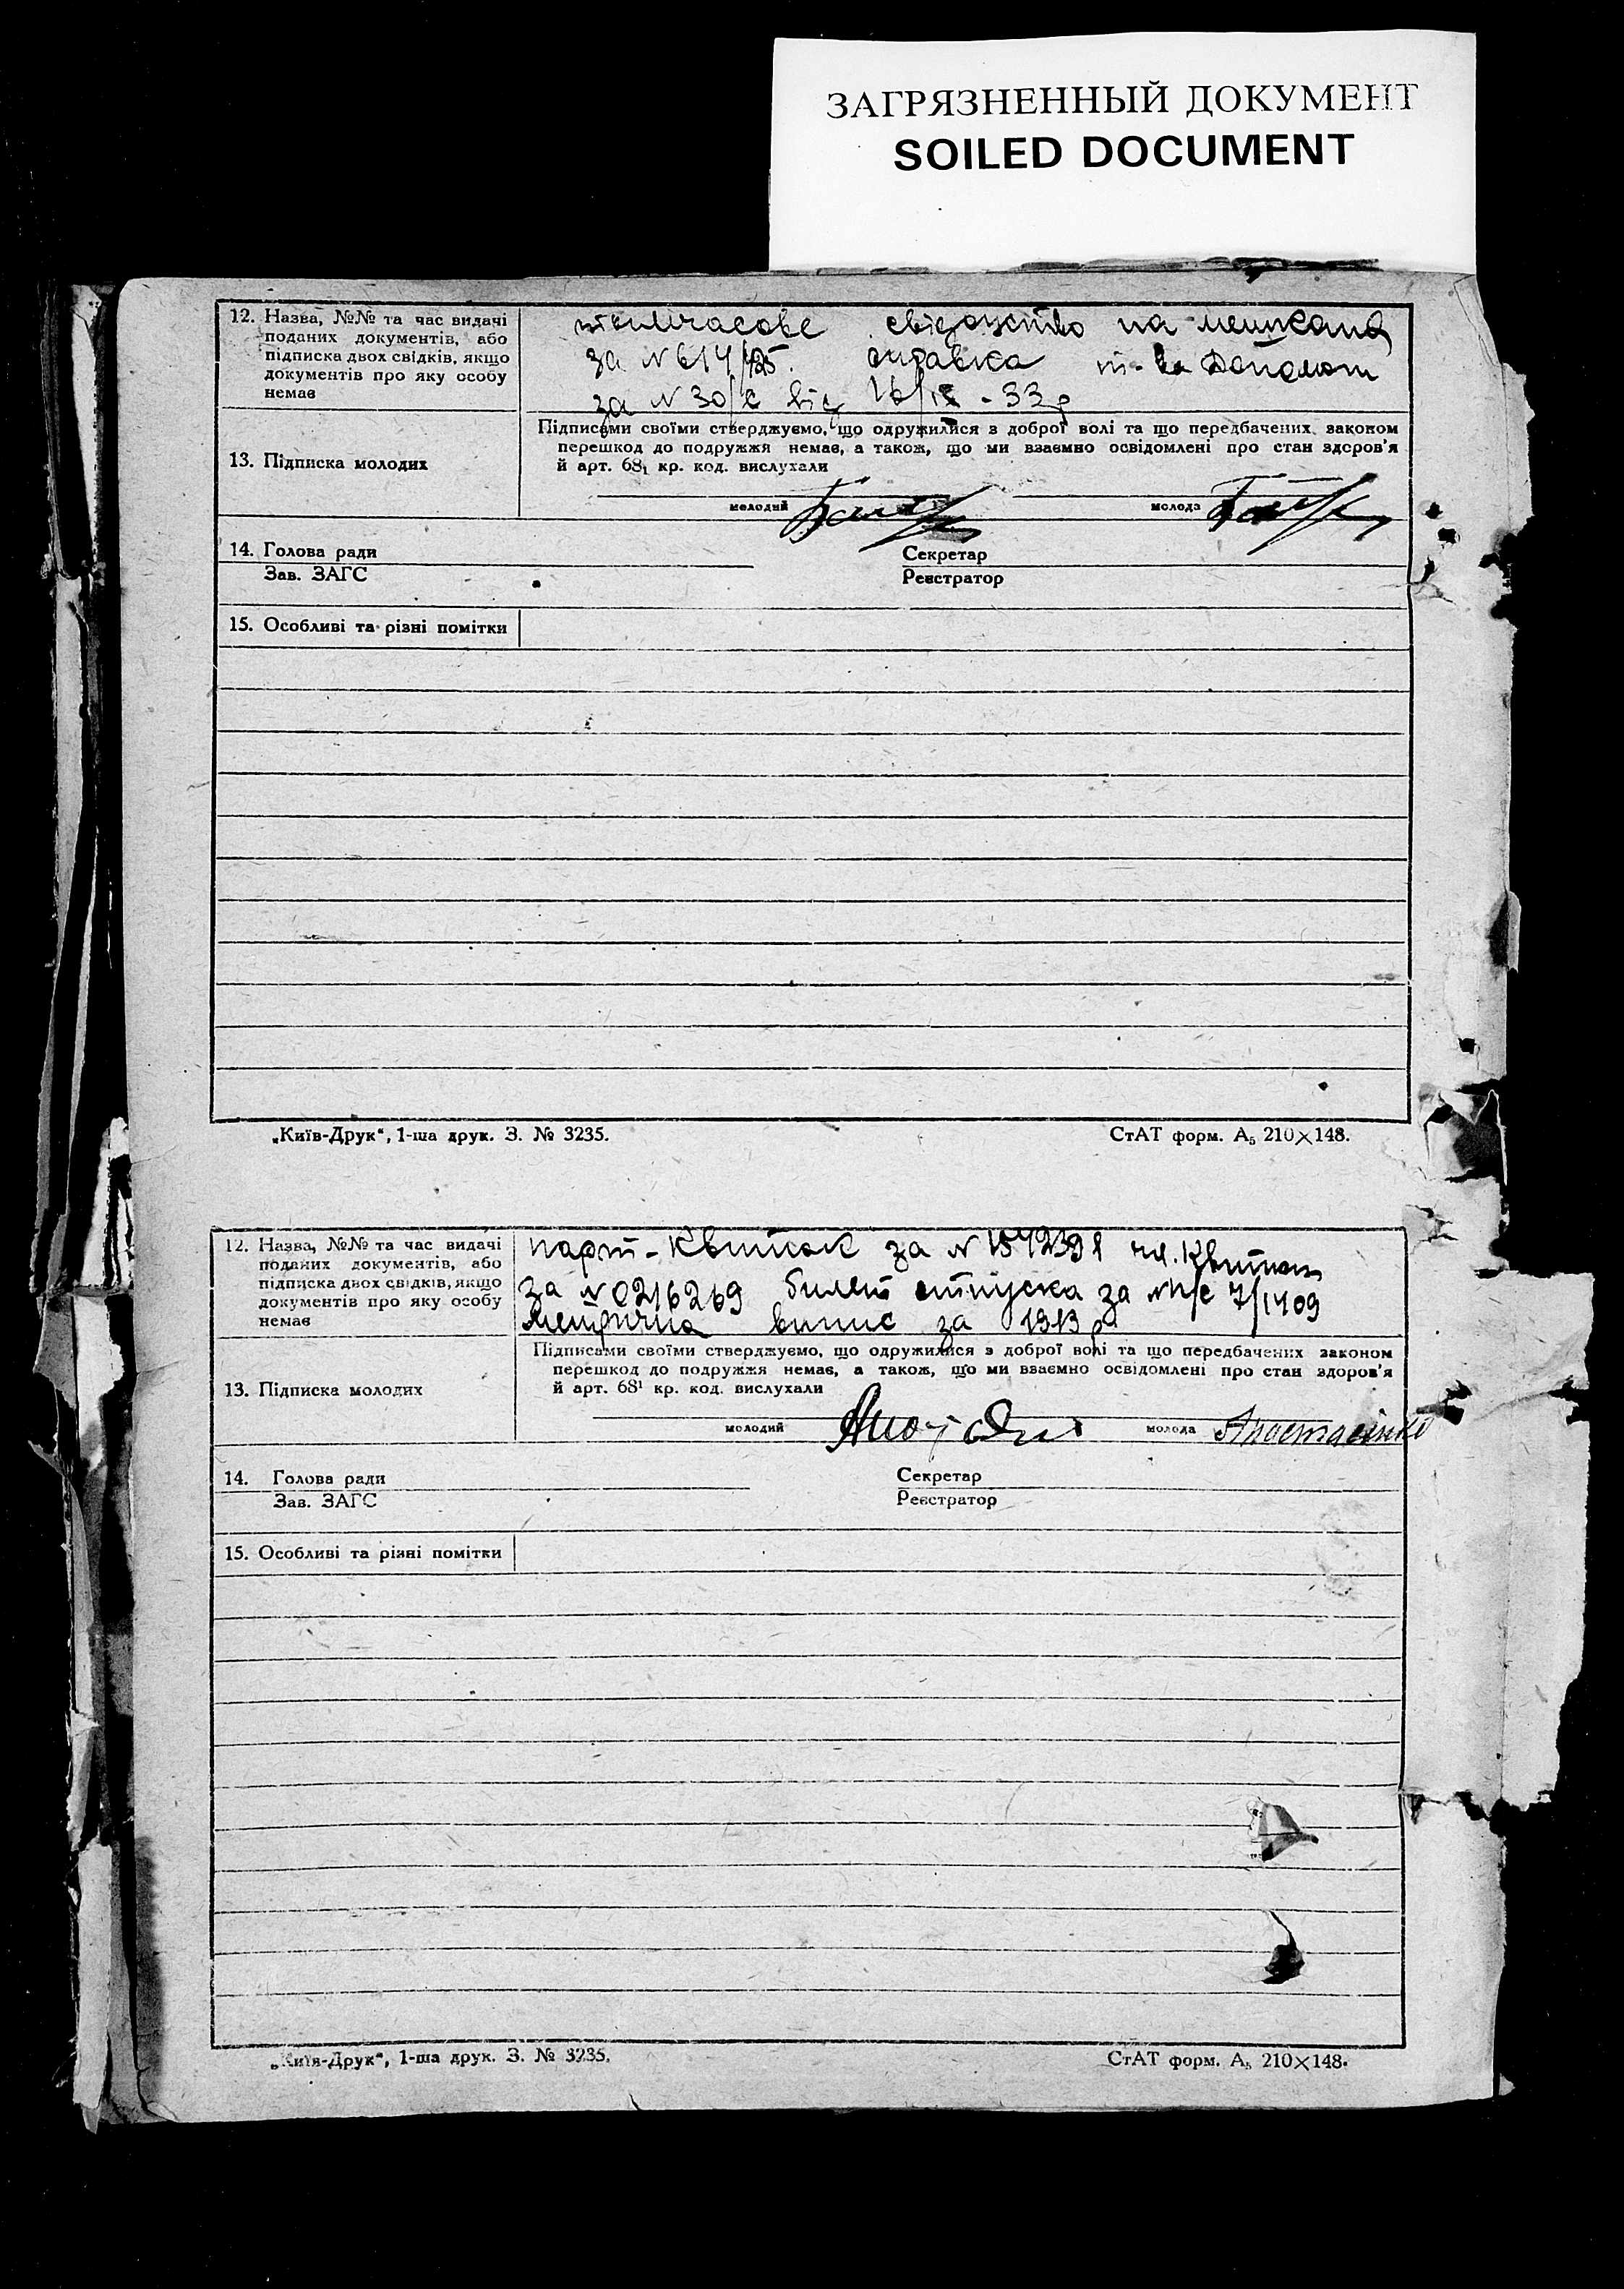 ЗАГРЯЗНЕННЫЙ ДОКУМЕНТ
SOILED DOCUMENT
12. Назва, №№ та час видачі
поданих документів, або
підписка двох свідків, якщо
документів про яку особу
немає
свідоцтво на
за N 614/ справка
за N 30/с від 16/ - 33 р
13. Підписка молодих
Підписами своїми стверджуємо, що одружилися з доброї волі та що передбачених законом
перешкод до подружжя немає, а також, що ми взаємно освідомлені про стан здоров'я
й арт. 68₁ кр. код. вислухали
молодий молода
14. Голова ради Секретар
Зав. ЗАГС Реєстратор
15. Особливі та різні помітки
„Київ-Друк“, 1-ша друк. З. № 3235. СтАТ форм. А₅ 210×148.
12. Назва, №№ та час видачі
поданих документів, або
підписка двох свідків, якщо
документів про яку особу
немає
парт-квиток за N чл. квиток
за N 0216269 билет отпуска за
метрична випис за 1913 р
13. Підписка молодих
Підписами своїми стверджуємо, що одружилися з доброї волі та що передбачених законом
перешкод до подружжя немає, а також, що ми взаємно освідомлені про стан здоров'я
й арт. 68¹ кр. код. вислухали
молодий молода
14. Голова ради Секретар
Зав. ЗАГС Реєстратор
15. Особливі та різні помітки
„Київ-Друк“, 1-ша друк. З. № 3235. СтАТ форм. А₅ 210×148.